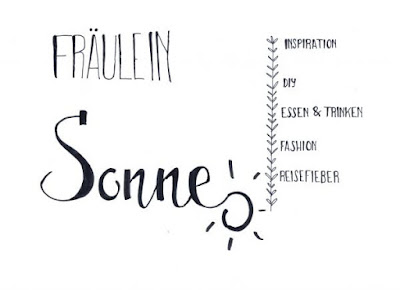 FRÄULEIN
Sonne
INSPIRATION
DIY
ESSEN & TRINKEN
FASHION
REISEFIEBER